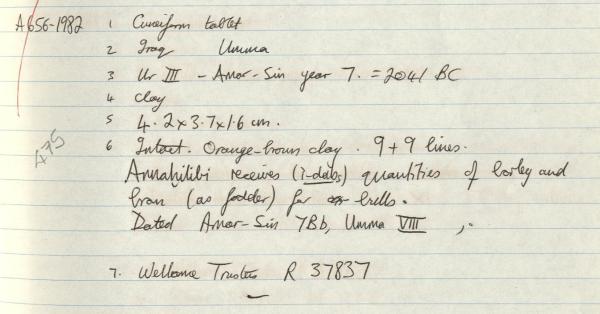 A656-1982 1 Cuneiform tablet
2 Iraq Umma
3 Ur III - Amar-Sin year 7. = 2041 BC
4 clay
5 4.2x3.7x1.6 cm.
6 Intact. Orange-brown clay. 9+9 lines.
475
receives (i-dab5) quantities of barley and
bran (as fodder) for bulls.
Dated Amar-Sin 7Bb, Umma VIII
7. Wellcome Trustees R 37837